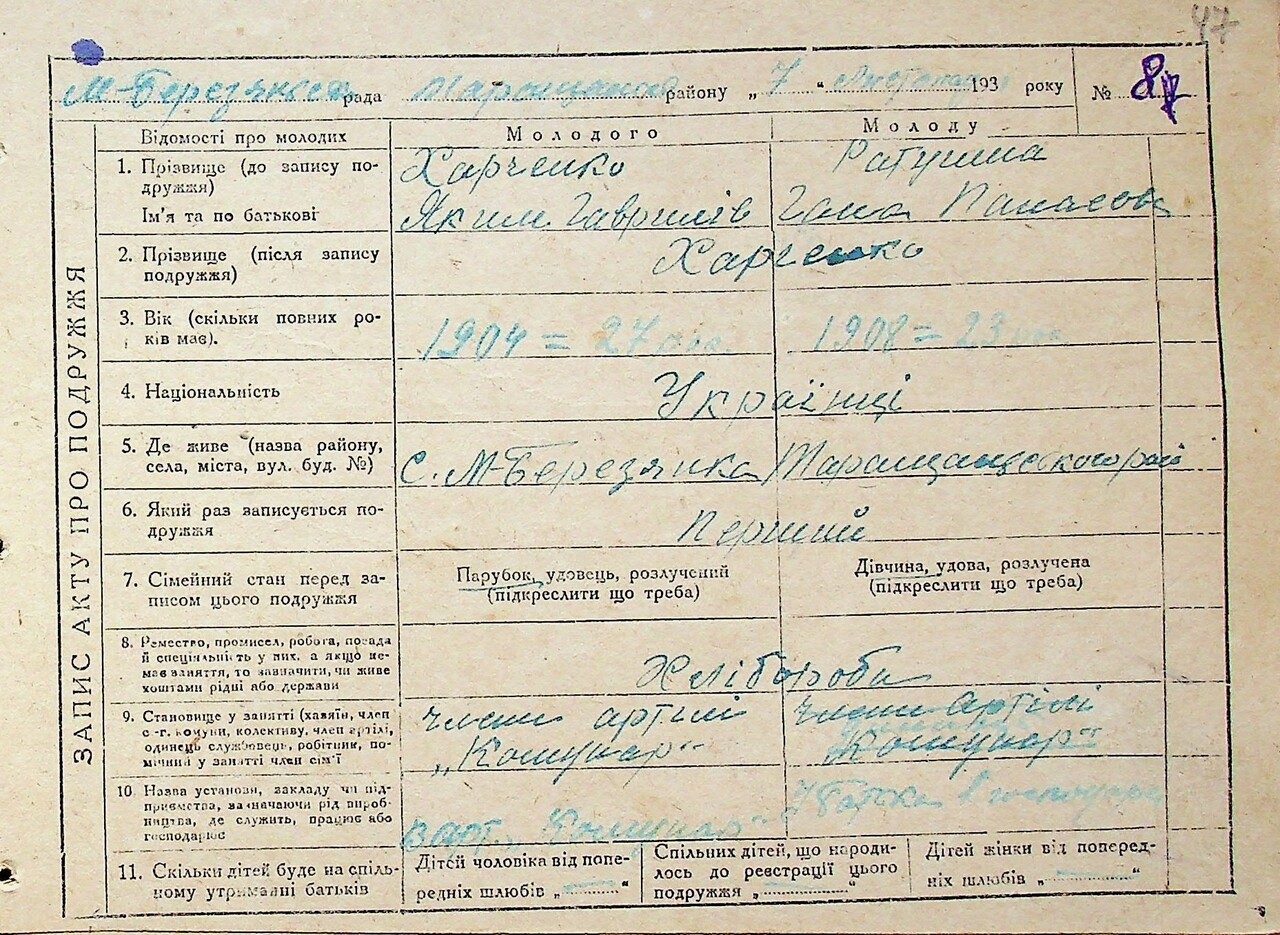 47
М-Березянська рада Таращанськ району „ 7 “ Листопада 193 року № 8
ЗАПИС АКТУ ПРО ПОДРУЖЖЯ
Відомості про молодих Молодого Молоду
1. Прізвище (до запису по- Харченко Ратушна
дружжя)
Ім'я та по батькові Яким Гаврилів Гана Панасова
2. Прізвище (після запису Харченко
подружжя)
3. Вік (скільки повних ро- 1904 = 27 1908 = 23
ків має).
4. Національність Українці
5. Де живе (назва району,
села, міста, вул. буд. №) с. М-Березянка Таращанського рай
6. Який раз записується по- Перший
дружжя
7. Сімейний стан перед за- Парубок, удовець, розлучений Дівчина, удова, розлучена
писом цього подружжя (підкреслити що треба) (підкреслити що треба)
8. Ремество, промисел, робота, посада
й спеціяльність у них, а якщо не-
має заняття, то зазначити, чи живе Хлібороби
коштами рідні або держави
9. Становище у занятті (хазяїн, член член артілі член артілі
с-г. комуни, колективу, член артілі,
одинець службовець, робітник, по- „Комунар“ „Комунар“
мічний у занятті член сім'ї
10. Назва установи, закладу чи під-
приємства, зазначаючи рід вироб- У батька в
ництва, де служить, працює або
господарює в арт. „Комунар“
11. Скільки дітей буде на спіль- Дітей чоловіка від попе- Спільних дітей, що народи- Дітей жінки від поперед-
ному утриманні батьків редніх шлюбів „ “ лось до реєстрації цього ніх шлюбів „ “
подружжя „ “